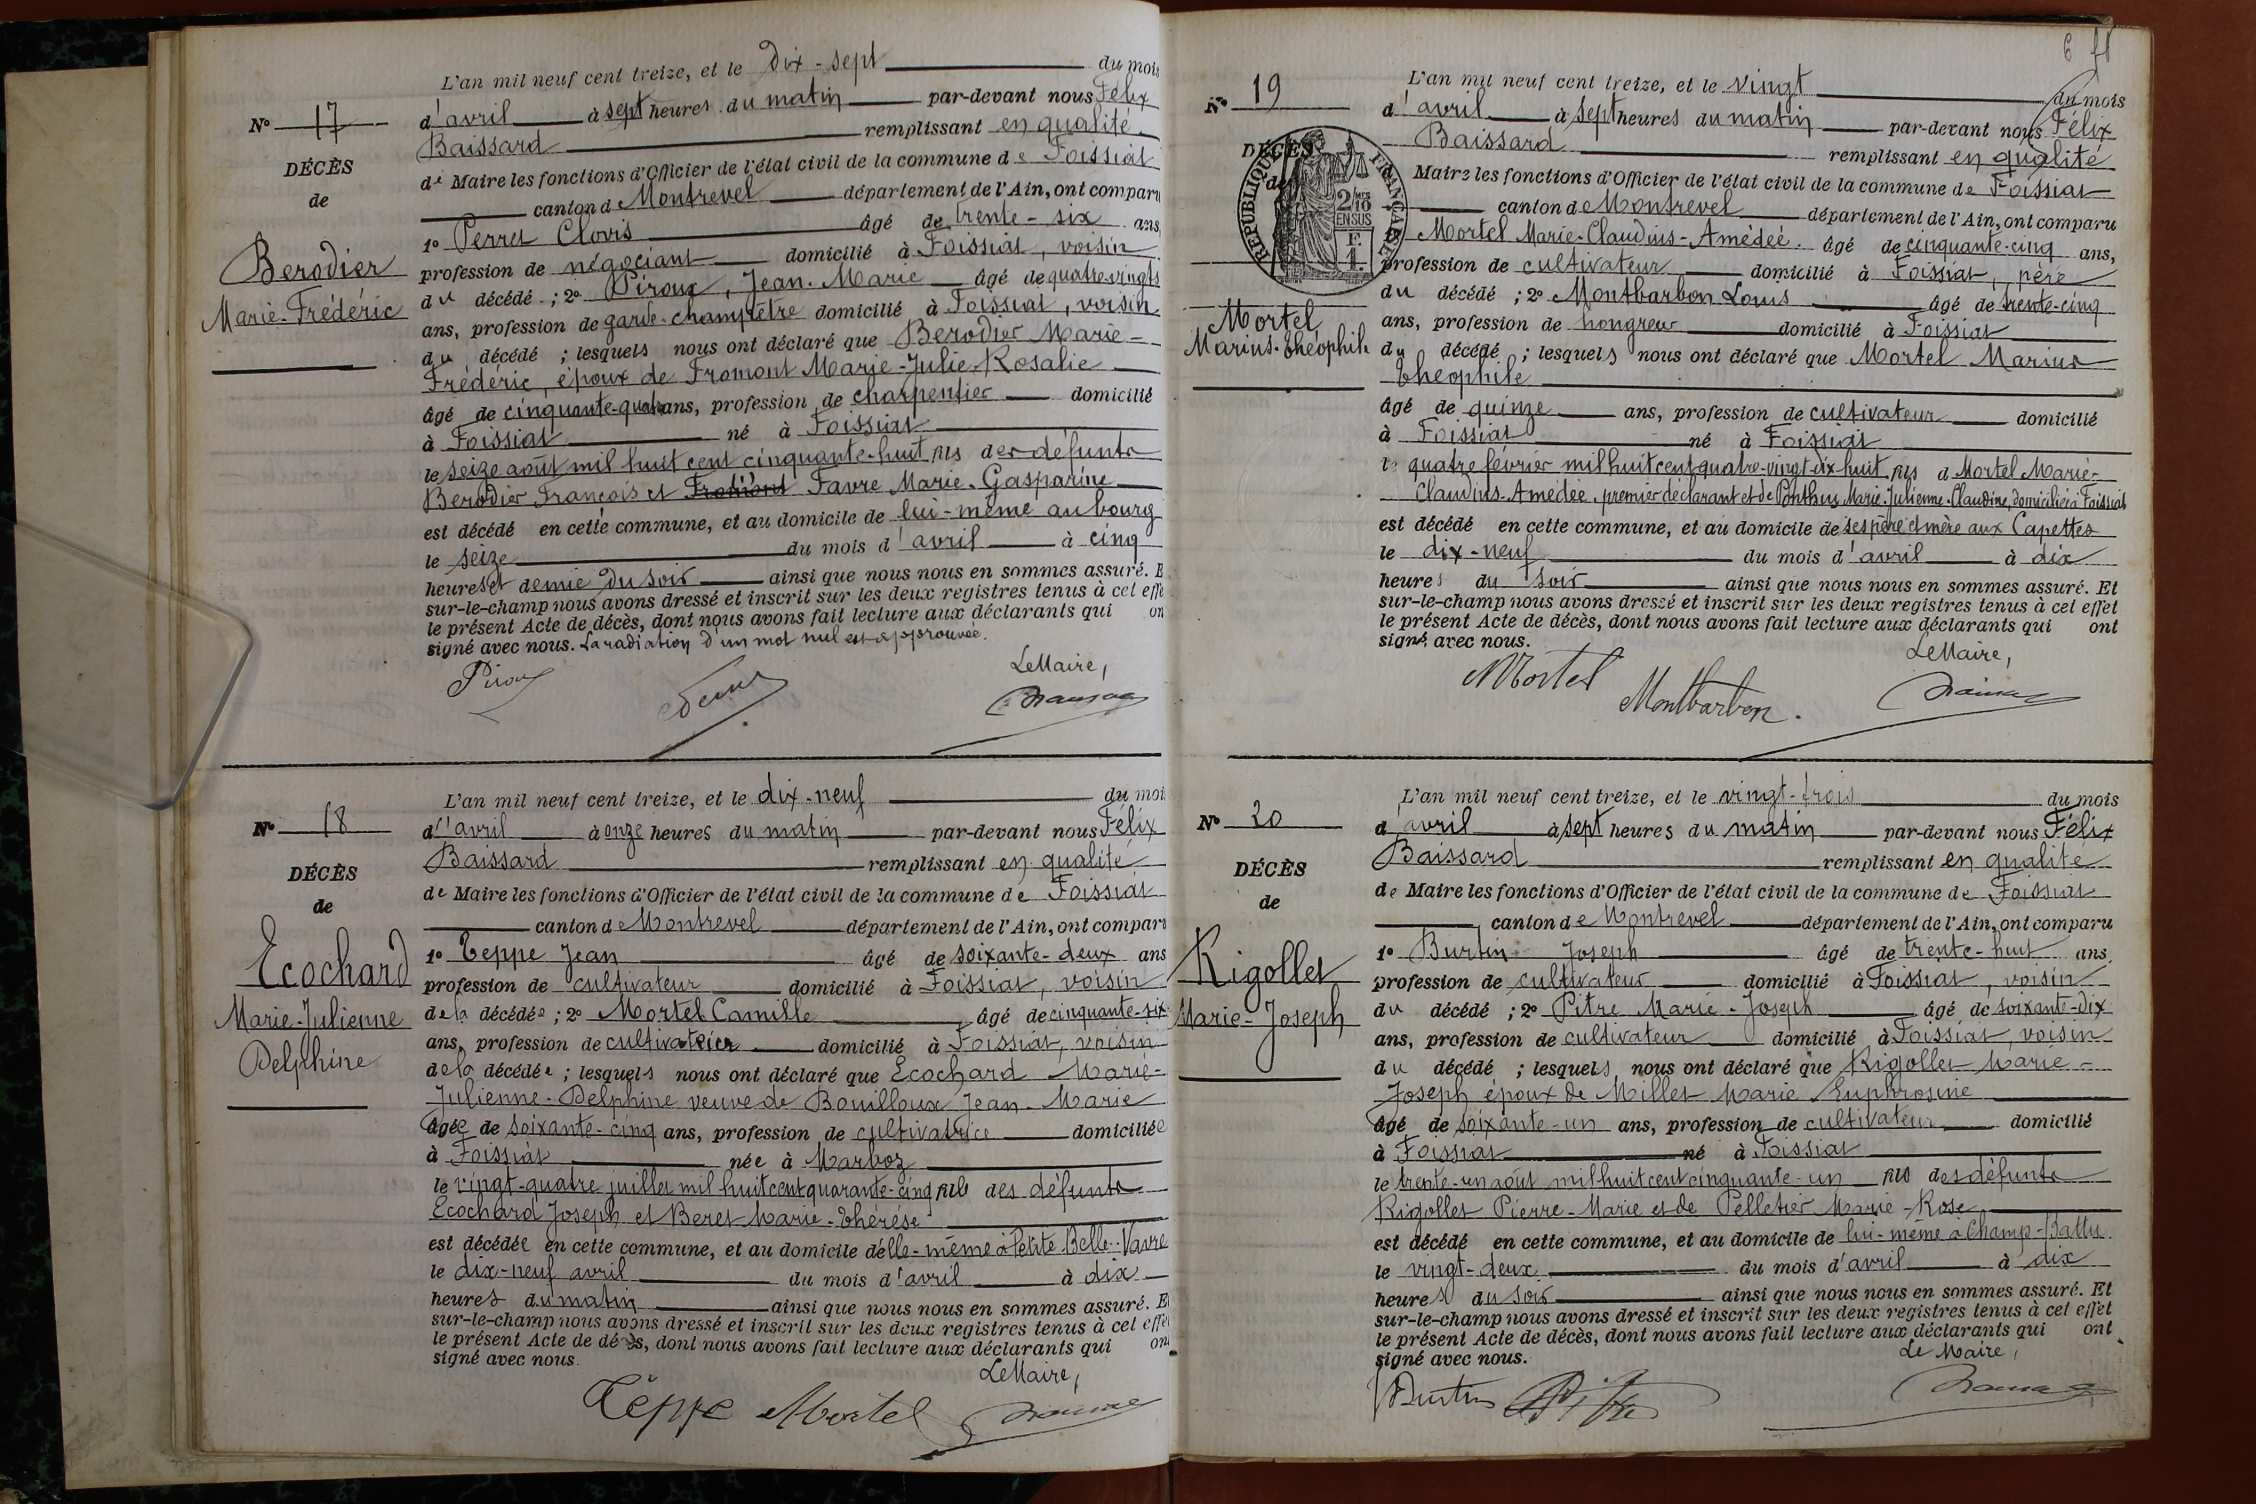 L'an mil neuf cent treize, et le dix-sept du mois
N° 17
d'avril à sept heures du matin par-devant nous Félix
Baissard remplissant en qualité
DÉCÈS
de Maire les fonctions d'Officier de l'état civil de la commune de Foissiat
de
canton de Montrevel département de l'Ain, ont comparu
1° Perret Clovis âgé de trente-six ans,
Berodier
profession de négociant domicilié à Foissiat, voisin
Marie-Frédéric
du décédé ; 2° Piroux, Jean-Marie âgé de quatre-vingts
ans, profession de garde-champêtre domicilié à Foissiat, voisin
du décédé ; lesquels nous ont déclaré que Berodier Marie-
Frédéric, époux de Fromont Marie-Julie-Rosalie
âgé de cinquante-quatre ans, profession de charpentier domicilié
à Foissiat né à Foissiat
le seize août mil huit cent cinquante-huit fils des défunts
Berodier François et Fromont Favre Marie-Gasparine
est décédé en cette commune, et au domicile de lui-même au bourg
le seize du mois d'avril à cinq
heures et demie du soir ainsi que nous nous en sommes assuré. E
sur-le-champ nous avons dressé et inscrit sur les deux registres tenus à cet effe
le présent Acte de décès, dont nous avons fait lecture aux déclarants qui on
signé avec nous. La radiation d'un mot nul est approuvée.
Le Maire,
Piroux

L'an mil neuf cent treize, et le dix-neuf du moi
N° 18
d'avril à onze heures du matin par-devant nous Félix
Baissard remplissant en qualité
DÉCÈS
de Maire les fonctions d'Officier de l'état civil de la commune de Foissiat
de
canton de Montrevel département de l'Ain, ont comparu
Ecochard
1° Teppe Jean âgé de soixante-deux ans
profession de cultivateur domicilié à Foissiat, voisin
Marie-Julienne
de la décédée ; 2° Mortel Camille âgé de cinquante-six
Delphine
ans, profession de cultivateur domicilié à Foissiat, voisin
de la décédée ; lesquels nous ont déclaré que Ecochard Marie-
Julienne-Delphine veuve de Bouilloux Jean-Marie
âgée de soixante-cinq ans, profession de cultivatrice domiciliée
à Foissiat née à Marboz
le vingt-quatre juillet mil huit cent quarante-cinq fils des défunts
Ecochard Joseph et Beret Marie-Thérèse
est décédée en cette commune, et au domicile d'elle-même à Petite Belle-Vavre
le dix-neuf avril du mois d'avril à dix
heures du matin ainsi que nous nous en sommes assuré. E
sur-le-champ nous avons dressé et inscrit sur les deux registres tenus à cet effe
le présent Acte de décès, dont nous avons fait lecture aux déclarants qui on
signé avec nous.
Le Maire,
Teppe Mortel

6
L'an mil neuf cent treize, et le vingt du mois
N° 19
d'avril à sept heures du matin par-devant nous Félix
Baissard remplissant en qualité
DÉCÈS
de
RÉPUBLIQUE FRANÇAISE
2/10 EN SUS
F. 1.
Maire les fonctions d'Officier de l'état civil de la commune de Foissiat
canton de Montrevel département de l'Ain, ont comparu
Mortel Marie-Claudius-Amédée âgé de cinquante-cinq ans,
profession de cultivateur domicilié à Foissiat, père
du décédé ; 2° Montbarbon Louis âgé de trente-cinq
Mortel
ans, profession de hongreur domicilié à Foissiat
Marius-Théophile
du décédé ; lesquels nous ont déclaré que Mortel Marius
Théophile
âgé de quinze ans, profession de cultivateur domicilié
à Foissiat né à Foissiat
le quatre février mil huit cent quatre-vingt-dix-huit fils d Mortel Marie-
Claudius-Amédée, premier déclarant et de Ponthus Marie-Julienne-Claudine, domiciliés à Foissiat
est décédé en cette commune, et au domicile de ses père et mère aux Capettes
le dix-neuf du mois d'avril à dix
heures du soir ainsi que nous nous en sommes assuré. Et
sur-le-champ nous avons dressé et inscrit sur les deux registres tenus à cet effet
le présent Acte de décès, dont nous avons fait lecture aux déclarants qui ont
signé avec nous.
Le Maire,
Mortel
Montbarbon.

L'an mil neuf cent treize, et le vingt-trois du mois
N° 20
d'avril à sept heures du matin par-devant nous Félix
Baissard remplissant en qualité
DÉCÈS
de Maire les fonctions d'Officier de l'état civil de la commune de Foissiat
de
canton de Montrevel département de l'Ain, ont comparu
Rigollet
1° Burtin Joseph âgé de trente-huit ans,
profession de cultivateur domicilié à Foissiat, voisin
Marie-Joseph
du décédé ; 2° Pitre Marie-Joseph âgé de soixante-dix
ans, profession de cultivateur domicilié à Foissiat, voisin
du décédé ; lesquels nous ont déclaré que Rigollet Marie-
Joseph époux de Millet Marie Euphrosine
âgé de soixante-un ans, profession de cultivateur domicilié
à Foissiat né à Foissiat
le trente-un août mil huit cent cinquante-un fils des défunts
Rigollet Pierre-Marie et de Pelletier Marie-Rose
est décédé en cette commune, et au domicile de lui-même à Champ-Battu
le vingt-deux du mois d'avril à dix
heures du soir ainsi que nous nous en sommes assuré. Et
sur-le-champ nous avons dressé et inscrit sur les deux registres tenus à cet effet
le présent Acte de décès, dont nous avons fait lecture aux déclarants qui ont
signé avec nous.
Le Maire,
Burtin Pitre